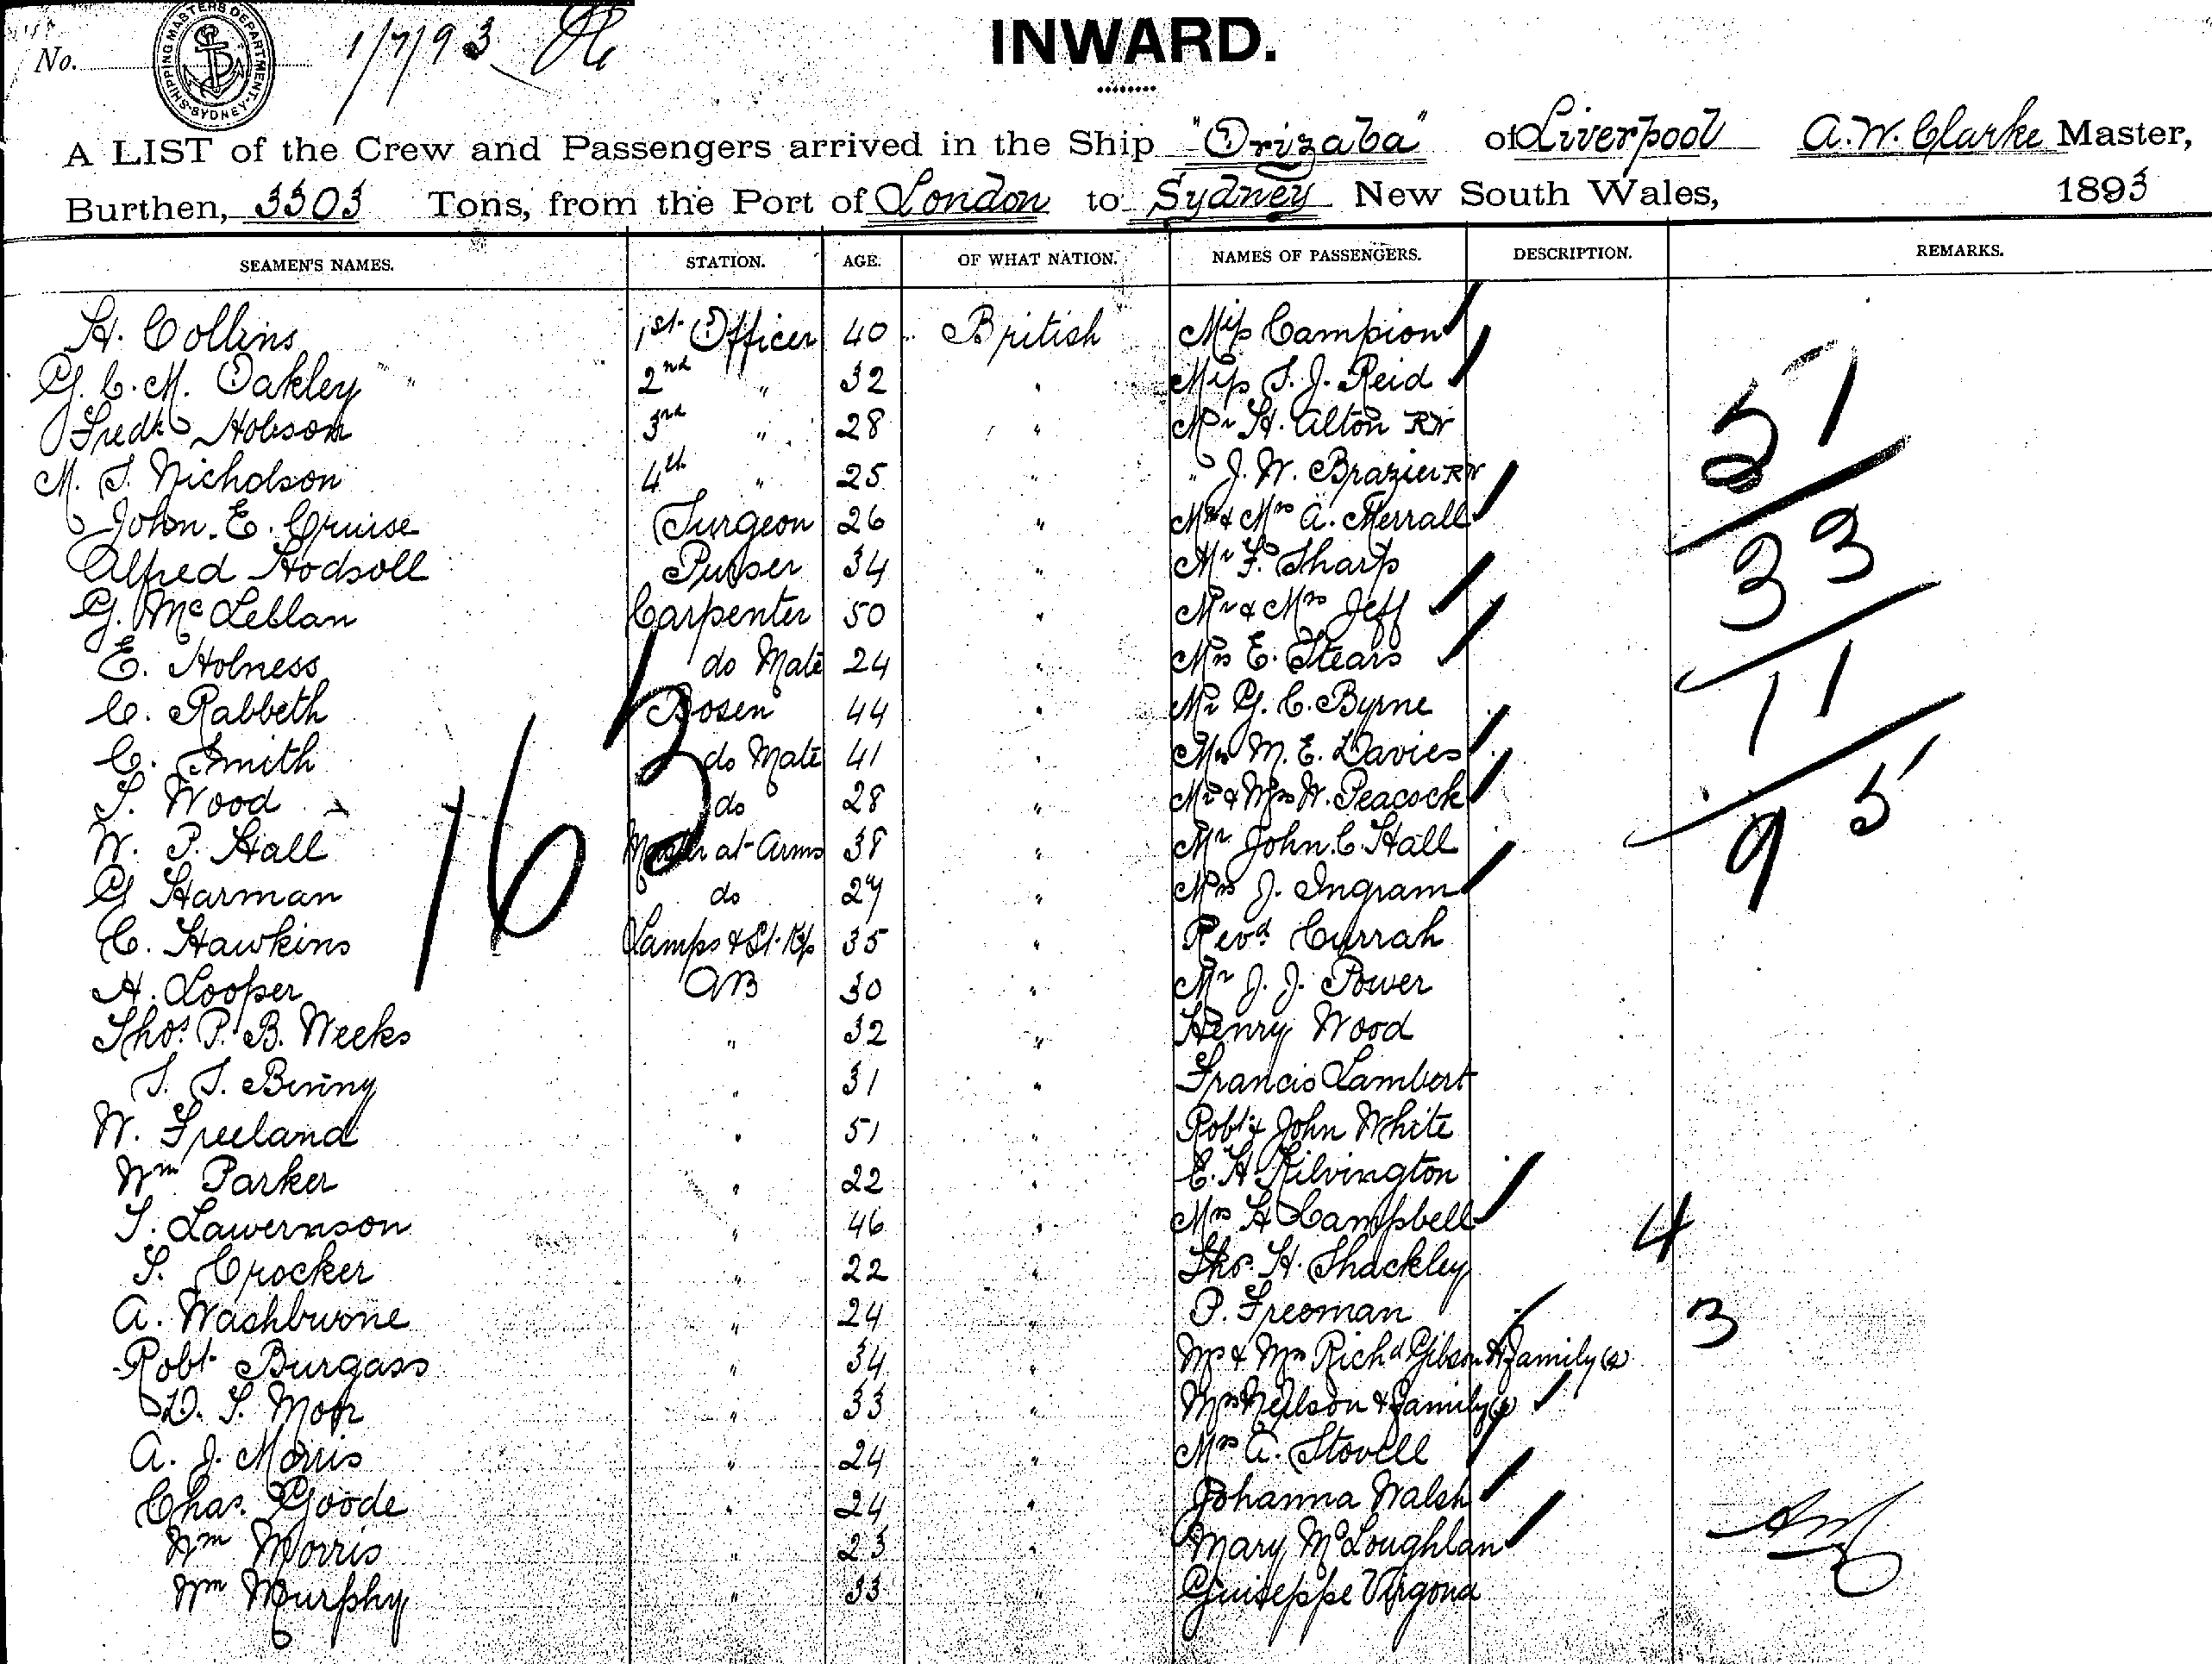 No. 1/7/93
SHIPPING MASTERS DEPARTMENT SYDNEY
INWARD.
A LIST of the Crew and Passengers arrived in the Ship "Orizaba" of Liverpool A. W. Clarke Master,
Burthen, 3303 Tons, from the Port of London to Sydney New South Wales, 1893
SEAMEN'S NAMES. STATION. AGE. OF WHAT NATION. NAMES OF PASSENGERS. DESCRIPTION. REMARKS.
H. Collins 1st Officer 40 British Miss Campion
G. C. M. Oakley 2nd " 32 " Miss S. J. Reid
Fredk Hobson 3rd " 28 " Mr H. Alton RN
M. S. Nicholson 4th " 25 " " J. W. Brazier RN
John. E. Cruise Surgeon 26 " Mr & Mrs A. Merrall
Alfred Hodsoll Purser 34 " Mr F. Sharp
G. McLeblan Carpenter 50 " Mr & Mrs Jeff
E. Holness do Mate 24 " Mrs E. Stears
C. Rabbeth Bosen 44 " Mr G. C. Byrne
C. Smith do Mate 41 " Mrs M. E. Davies
S. Wood do 28 " Mr & Mrs W. Peacock
W. P. Hall Master at-Arms 38 " Mr John. C. Hall
G Harman do 27 " Mrs J. Ingram
C. Hawkins Lamps & St. Kp 35 " Revd Currah
H. Looper AB 30 " Mr J. J. Power
Thos. P. B. Weeks " 32 " Henry Wood
T. S. Binny " 31 " Francis Lambert
W. Freeland " 51 " Robt & John White
Wm Parker " 22 " E. H Kilvington
T. Lawernson " 46 " Mrs H Campbell
S. Crocker " 22 " Thos. H. Shackley
A. Washburone " 24 " P. Freeman
Robt. Burgass " 34 " Mr & Mrs Richd Gibson & Family (4)
D. S. Moor " 33 " Mrs Neilson & Family
A. J. Morris " 24 " Mrs A. Stovell
Chas. Goode " 24 " Johanna Walsh
Wm Morris " 23 " Mary McLoughlan
Wm Murphy " 33 " Guiseppe Virgona
163
51
33
11
95
4
3